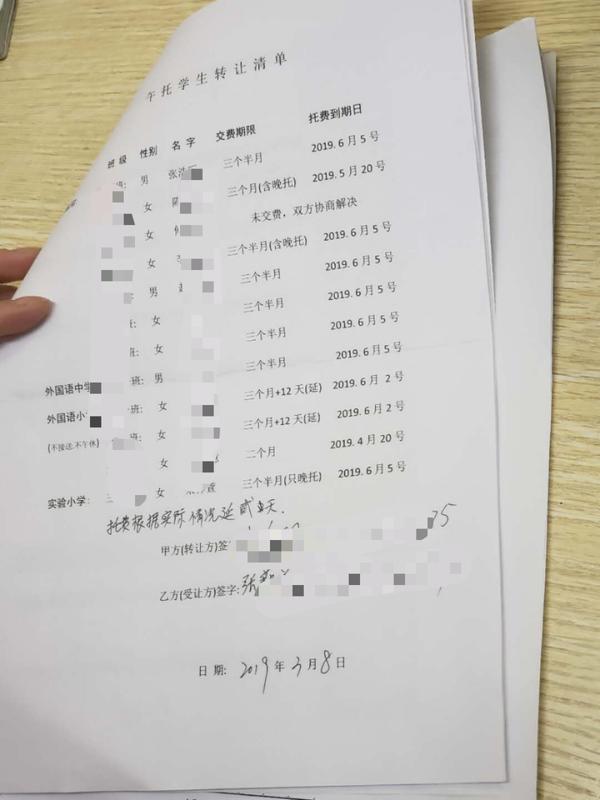 午托学生转让清单
班 级 性别 名 字 交费期限 托费到期日
班: 男 张 三个半月 2019. 6 月 5 号
女 三个月(含晚托) 2019. 5 月 20 号
女 未交费，双方协商解决
女 三个半月(含晚托) 2019. 6 月 5 号
男 三个半月 2019. 6 月 5 号
班: 女 三个半月 2019. 6 月 5 号
班: 女 三个半月 2019. 6 月 5 号
外国语中学 班: 男 三个半月 2019. 6 月 5 号
外国语小 班: 女 三个月+12 天(延) 2019. 6 月 2 号
(不接送.不午休) 班: 女 三个月+12 天(延) 2019. 6 月 2 号
女 二个月 2019. 4 月 20 号
实验小学: 女 三个半月(只晚托) 2019. 6 月 5 号
托费根据实际情况延 天.
甲方(转让方)签 35
乙方(受让方)签字: 张
日 期: 2019 年 3 月 8 日